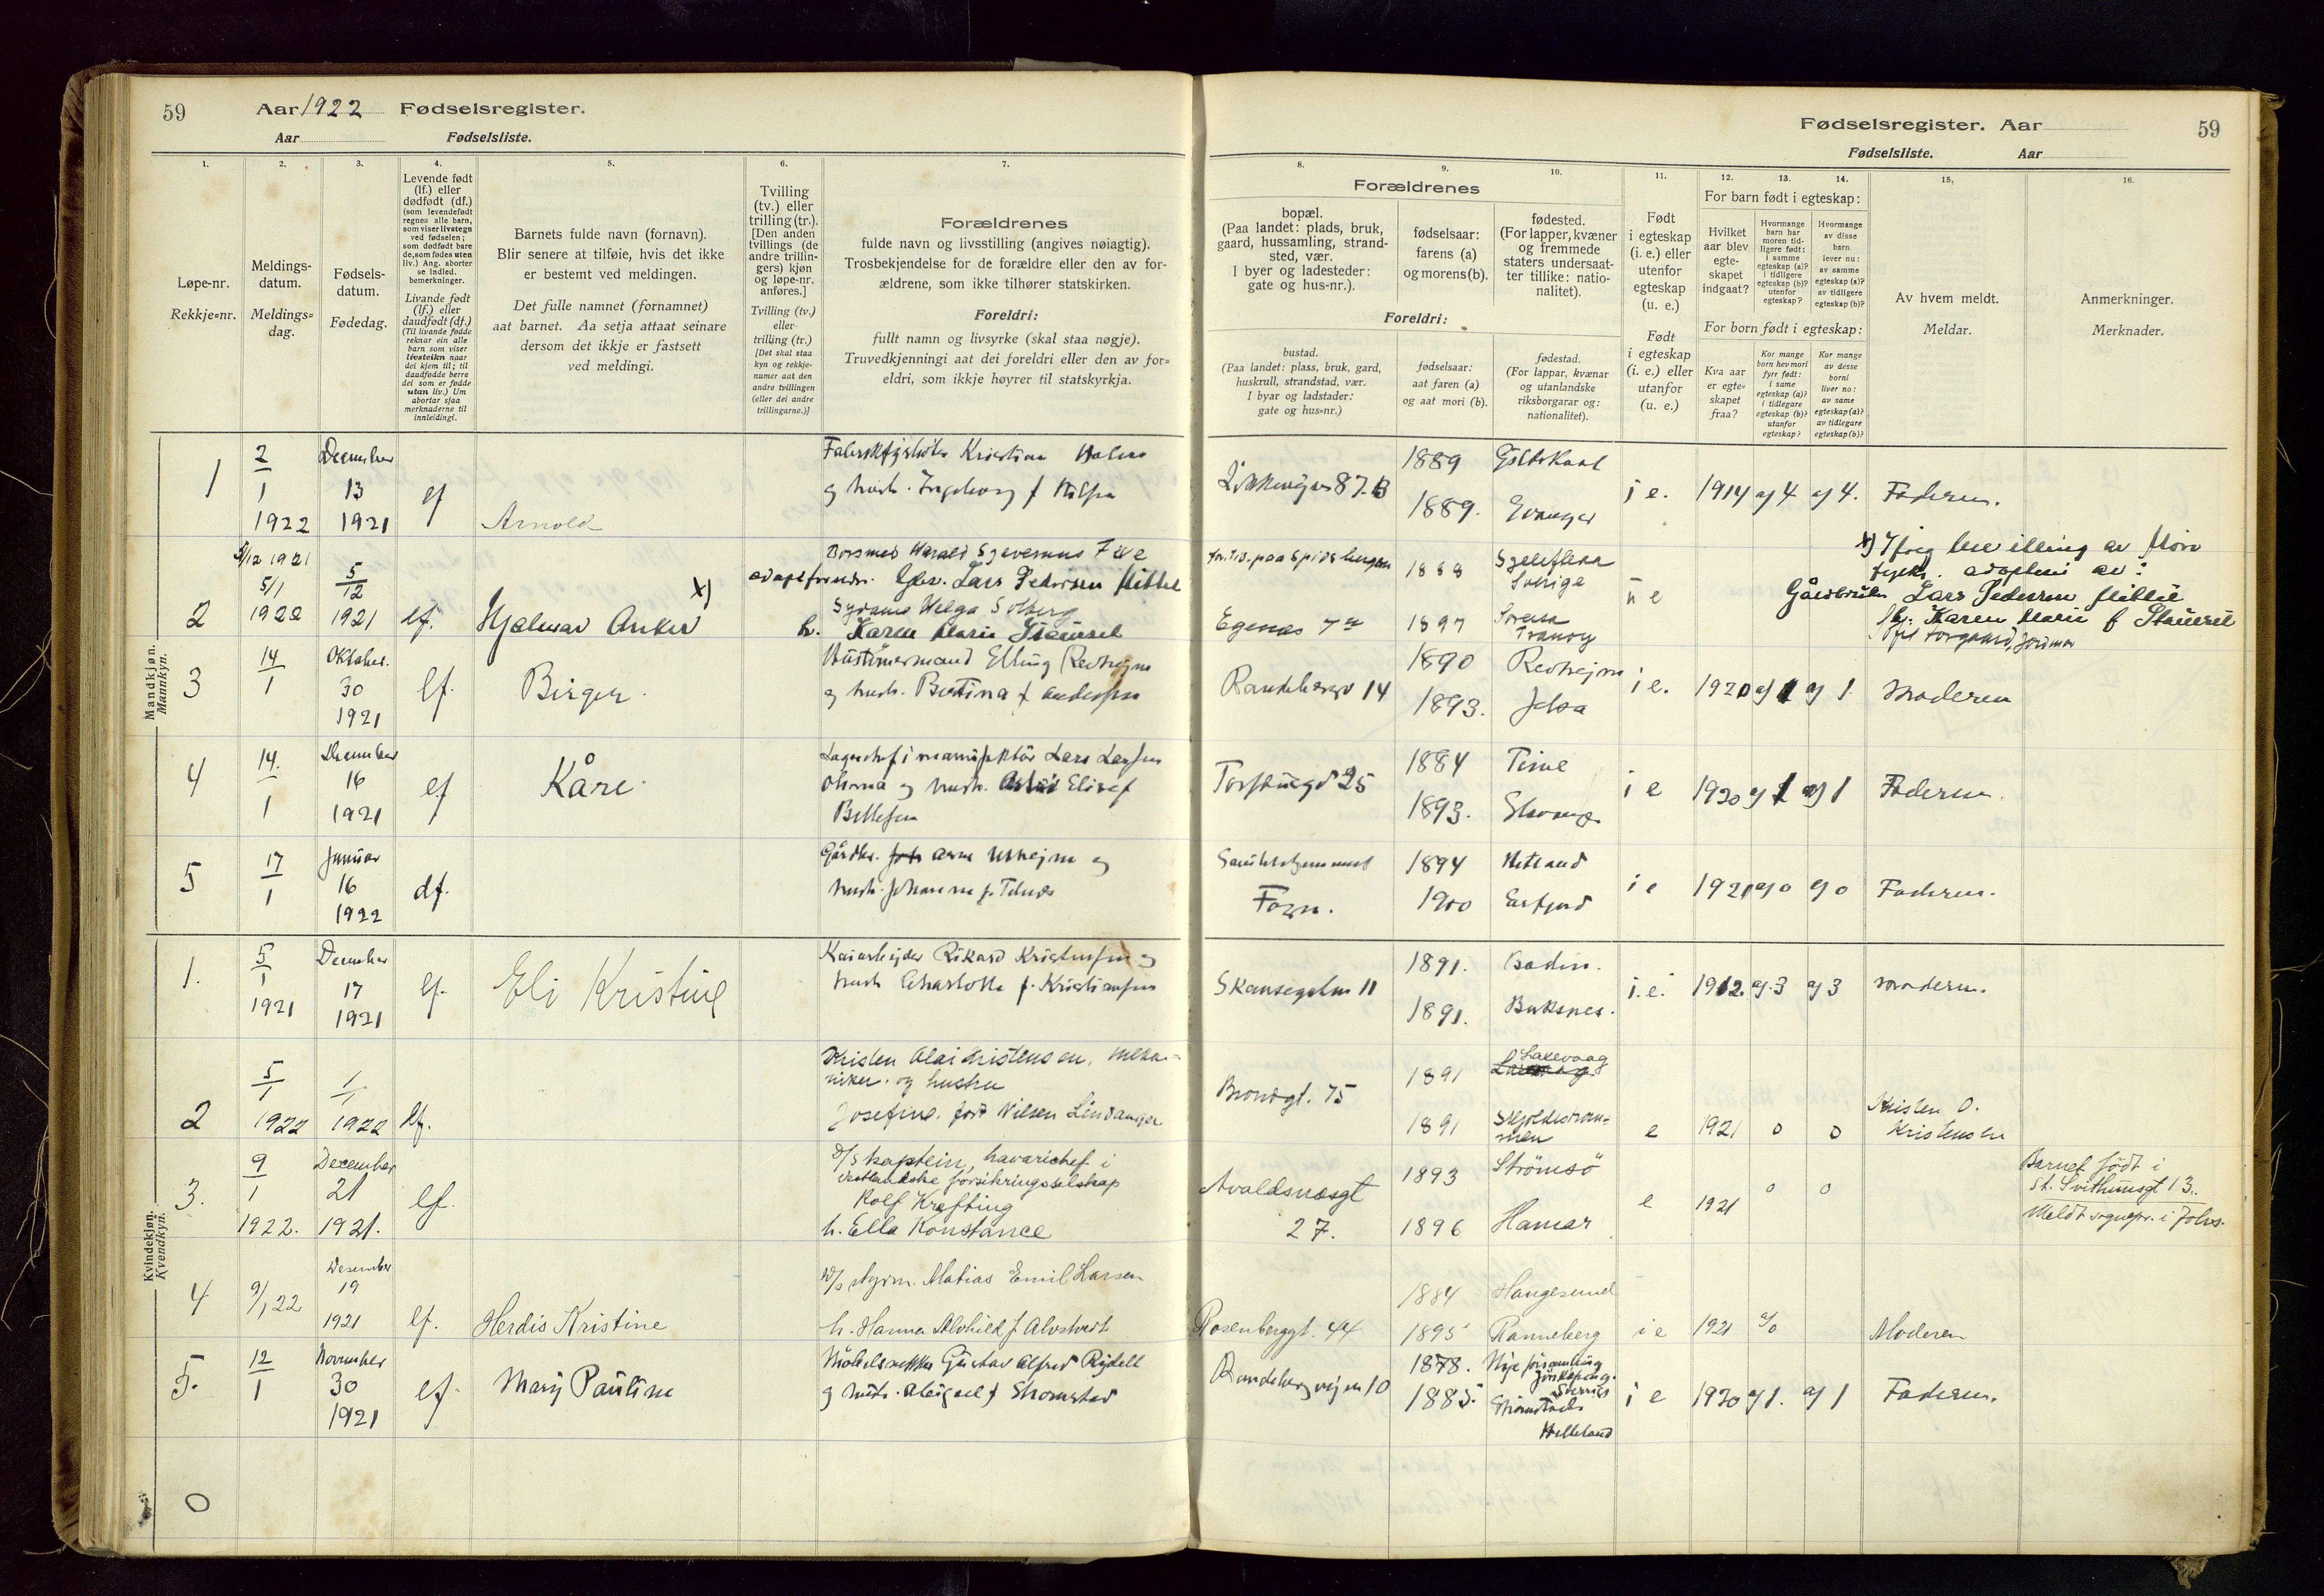 59
Aar 1922 Fødselsregister.
Aar Fødselsliste.
1.
Løpe-nr.
Rekkje=nr.
2.
Meldings-
datum.
Meldings=
dag.
3.
Fødsels-
datum.
Fødedag.
4.
Levende født
(lf.) eller
dødfødt (df.)
(som levendefødt
regnes alle barn,
som viser livstegn
ved fødselen;
som dødfødt bare
de, som fødes uten
liv.) Ang. aborter
se indled.
bemerkninger.
Livande født
(lf.) eller
daudfødt (df.)
(Til livande fødde
reknar ein alle
barn som viser
livsteikn naar
dei kjem til; til
daudfødde berre
dei som er fødde
utan liv.) Um
abortar sjaa
merknaderne til
innleidingi.
5.
Barnets fulde navn (fornavn).
Blir senere at tilføie, hvis det ikke
er bestemt ved meldingen.
Det fulle namnet (fornamnet)
aat barnet. Aa setja attaat seinare
dersom det ikkje er fastsett
ved meldingi.
6.
Tvilling
(tv.) eller
trilling (tr.).
[Den anden
tvillings (de
andre trillin-
gers) kjøn
og løpe-nr.
anføres.]
Tvilling (tv.)
eller
trilling (tr.)
[Det skal staa
kyn og rekkje-
numer aat den
andre tvillingen
(eller dei andre
trillingarne.)]
7.
Forældrenes
fulde navn og livsstilling (angives nøiagtig).
Trosbekjendelse for de forældre eller den av for-
ældrene, som ikke tilhører statskirken.
Foreldri:
fullt namn og livsyrke (skal staa nøgje).
Truvedkjenningi aat dei foreldri eller den av for=
eldri, som ikkje høyrer til statskyrkja.
Fødselsregister. Aar
Fødselsliste. Aar
59
8.
Forældrenes
bopæl.
(Paa landet: plads, bruk,
gaard, hussamling, strand-
sted, vær.
I byer og ladesteder:
gate og hus-nr.).
Foreldri:
bustad.
(Paa landet: plass, bruk, gard,
huskrull, strandstad, vær.
I byar og ladstader:
gate og hus=nr.)
9.
fødselsaar:
farens (a)
og morens (b).
fødselsaar:
aat faren (a)
og aat mori (b).
10.
fødested.
(For lapper, kvæner
og fremmede
staters undersaat-
ter tillike: natio-
nalitet).
fødestad.
(For lappar, kvænar
og utanlandske
riksborgarar og:
nationalitet).
11.
Født
i egteskap
(i. e.) eller
utenfor
egteskap
(u. e.)
Født
i egteskap
(i. e.) eller
utanfor
(u. e.)
12. 13. 14.
For barn født i egteskap:
Hvilket
aar blev
egte-
skapet
indgaat?
Hvormange
barn har
moren tid-
ligere født:
i samme
egteskap (a)?
i tidligere
egteskap (b)?
utenfor
egteskap?
Hvormange
av disse
barn
lever nu:
av samme
egteskap (a)?
av tidligere
egteskap (b)?
For born født i egteskap:
Kva aar
er egte-
skapet
fraa?
Kor mange
born hev mori
fyrr født:
i same
egteskap (a)?
i tidlegare
egteskap (b)?
utanfor
egteskap?
Kor mange
av desse
borni
liver no:
av same
egteskap (a)?
av tidlegare
egteskap (b)?
15.
Av hvem meldt.
Meldar.
16.
Anmerkninger.
Merknader.
Mandkjøn.
Mannkyn.
1
2
1
1922
December
13
1921
lf
Arnold
og hustr. Ingeborg f
87 B
1889
1889.
Gildskaal
Evanger
i e.
1914
a) 4
a) 4.
Faderen.
2
5/12 1921
5/1
1922
5
12
1921
lf.
Hjalmar Anker x)
adoptforeldr. Lars Pedersen
Helga Solberg
h. Karen Marie
paa Spidsbergen
Egenes
1888
1897
Sverige
u e
x) Ifølge
adoptert av:
Lars Pedersen
Karen Marie f
3
14
1
Oktober.
30
1921
lf.
Birger.
Elling Revheim
og hustr. Bertina f Andersen
Randabergv 14
1890
1893.
Revheim
Jelsa
i e.
1920
a) 1
a) 1.
Moderen
4
14.
1
December
16
1921
lf
Kåre.
Lagerchef i manufaktur Lars Larsen
og hustr. Elisef
25
1884
1893.
Time
Stavanger
i e
1920
a) 1
a) 1
Faderen.
5
17
1
Januar
16
1922
df.
Arne og
hustr. Johanne f.
1894
1900
Hetland
i e
1921
a) 0
a) 0
Faderen.
Kvindekjøn.
Kvendkyn.
1.
5
1
1921
December
17
1921
lf.
Eli Kristine
Kaiarbeider Rikard Kristensen og
hustr Charlotte f. Kristiansen
11
1891.
1891.
Bodin.
Buksnes.
i. e.
1912.
a). 3
a) 3
moderen.
2
5
1
1922
1
1
1922
lf.
Kristensen, meka-
niker. og hustru
Josefine. født Nilsen Lindanger
75
1891
1891
Laxevaag
Skjoldestrøm-
men
e
1921
0
0
Kristen O.
Kristensen
3.
9
1
1922.
December
21
1921.
lf.
D/S kaptein, havarichef i
Vestlandske forsikringsselskap
Rolf Krefting
h. Ella Konstance
Avaldsnæsgt
27.
1893
1896
Strömsö
Hamar
e
1921
0
0
Barnet født i
St. Svithunsgt 13.
Meldt sognepr. i Johs.
4
9/1 22
Desember
19
1921
lf.
Herdis Kristine
D/s styrm. Matias Emil Larsen
h. Hanna Alvhild f Alvestvedt
Rosenberggt. 44
1884
1895
Haugesund
Ranneberg
i e
1921
a/0
Moderen
5.
12
1
November
30
1921
lf.
Mary Pauline
Møbelsnekker Gustav Alfred Rydell
og hustr. Abigael f Strømstad
Randabergveien 10
1878.
1885
Jönköping.
Sverige
Strømstad
Helleland
i e
1920
a) 1.
a) 1
Faderen.
0